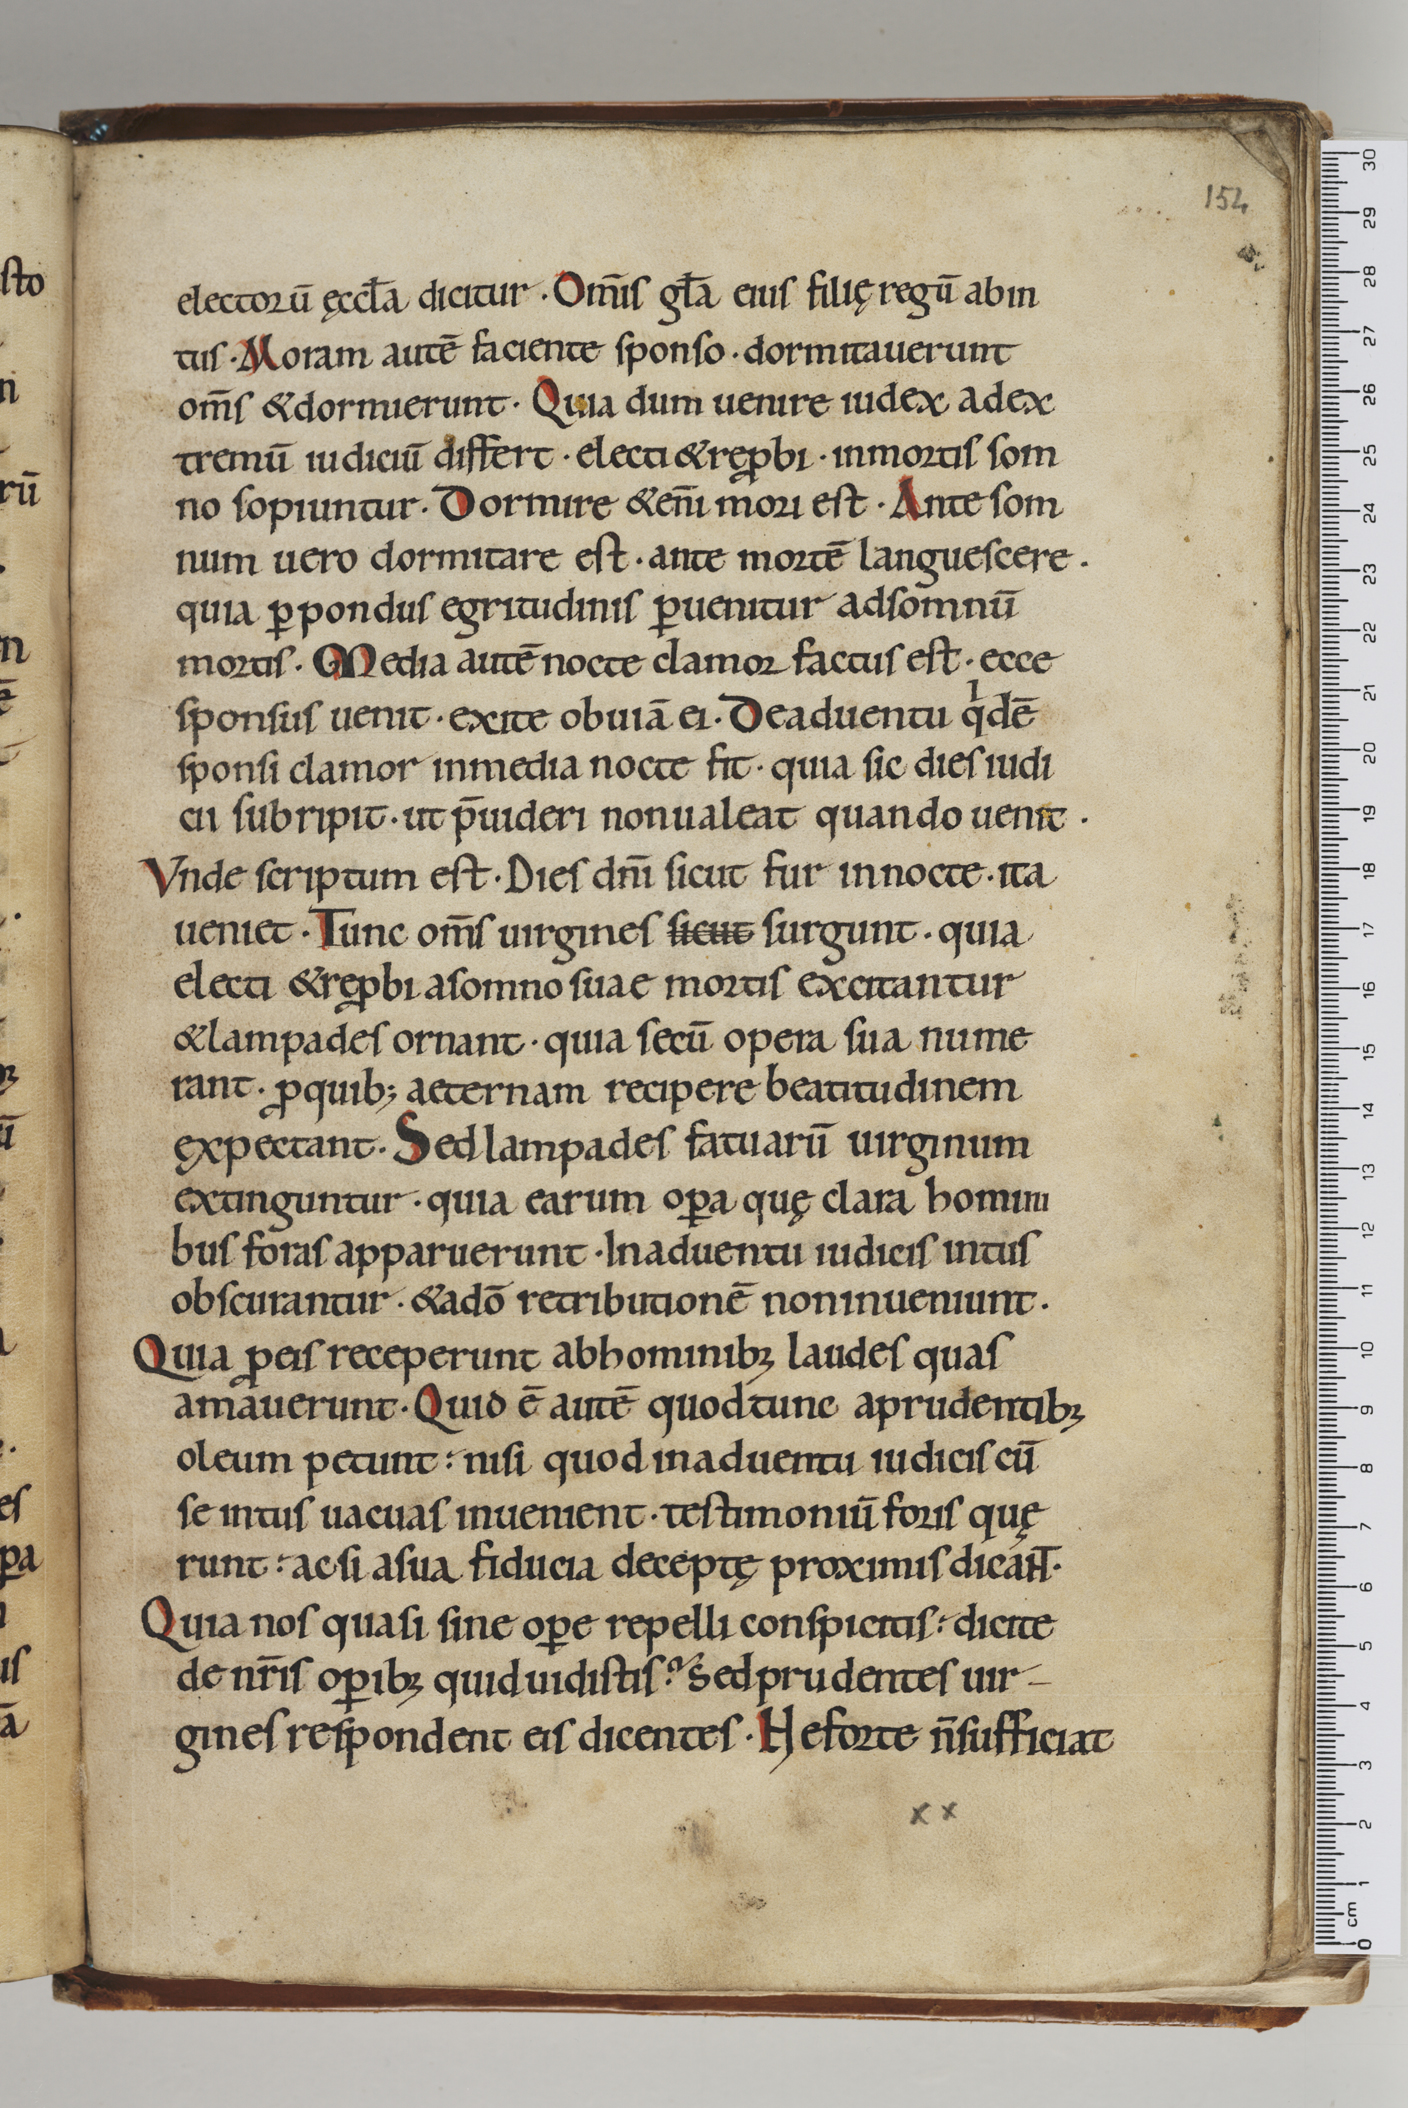 154
electorū ęccła dicitur · Om̄is gła eius filię regū abin
tus · Moram autē faciente sponso · dormitauerunt
om̄s & dormierunt · Quia dum uenire iudex adex
tremū iudiciū differt · electi & reꝓbi · inmortis som
no sopiuntur · Dormire & eni̅ mori est · Ante som
num uero dormitare est · ante mortē languescere ·
quia ꝑ pondus egritudinis ꝑuenitur adsomnū
mortis · Media autē nocte clamor factus est · ecce
sponsus uenit · exite obuiā ei · Deaduentu qͥdē
sponsi clamor inmedia nocte fit · quia sic dies iudi
cii subripit · ut p̄uideri nonualeat quando uenit ·
Vnde scriptum est · Dies dn̄i sicut fur innocte · ita
ueniet · Tunc om̄s uirgines sicut surgunt · quia
electi & reꝓbi asomno suae mortis excitantur
& lampades ornant · quia secū opera sua nume
rant · ꝓquib; aeternam recipere beatitudinem
expectant · Sed lampades fatuarū uirginum
extinguntur · quia earum oꝑa quę clara homini
bus foras apparuerunt · Inaduentu iudicis intus
obscurantur · & adō retributionē noninueniunt ·
Quia ꝓeis receperunt abhominibꝫ laudes quas
amauerunt · Quid ē autē quodtunc aprudentibꝫ
oleum petunt : nisi quod inaduentu iudicis cū
se intus uacuas inuenient · testimoniū foris quę
runt : acsi asua fiducia deceptę proximis dicaNT ·
Quia nos quasi sine oꝑe repelli conspicitis : dicite
de nr̄is oꝑibꝫ quid uidistis ? Sed prudentes uir -
gines respondent eis dicentes · Neforte n̄ sufficiat
x x